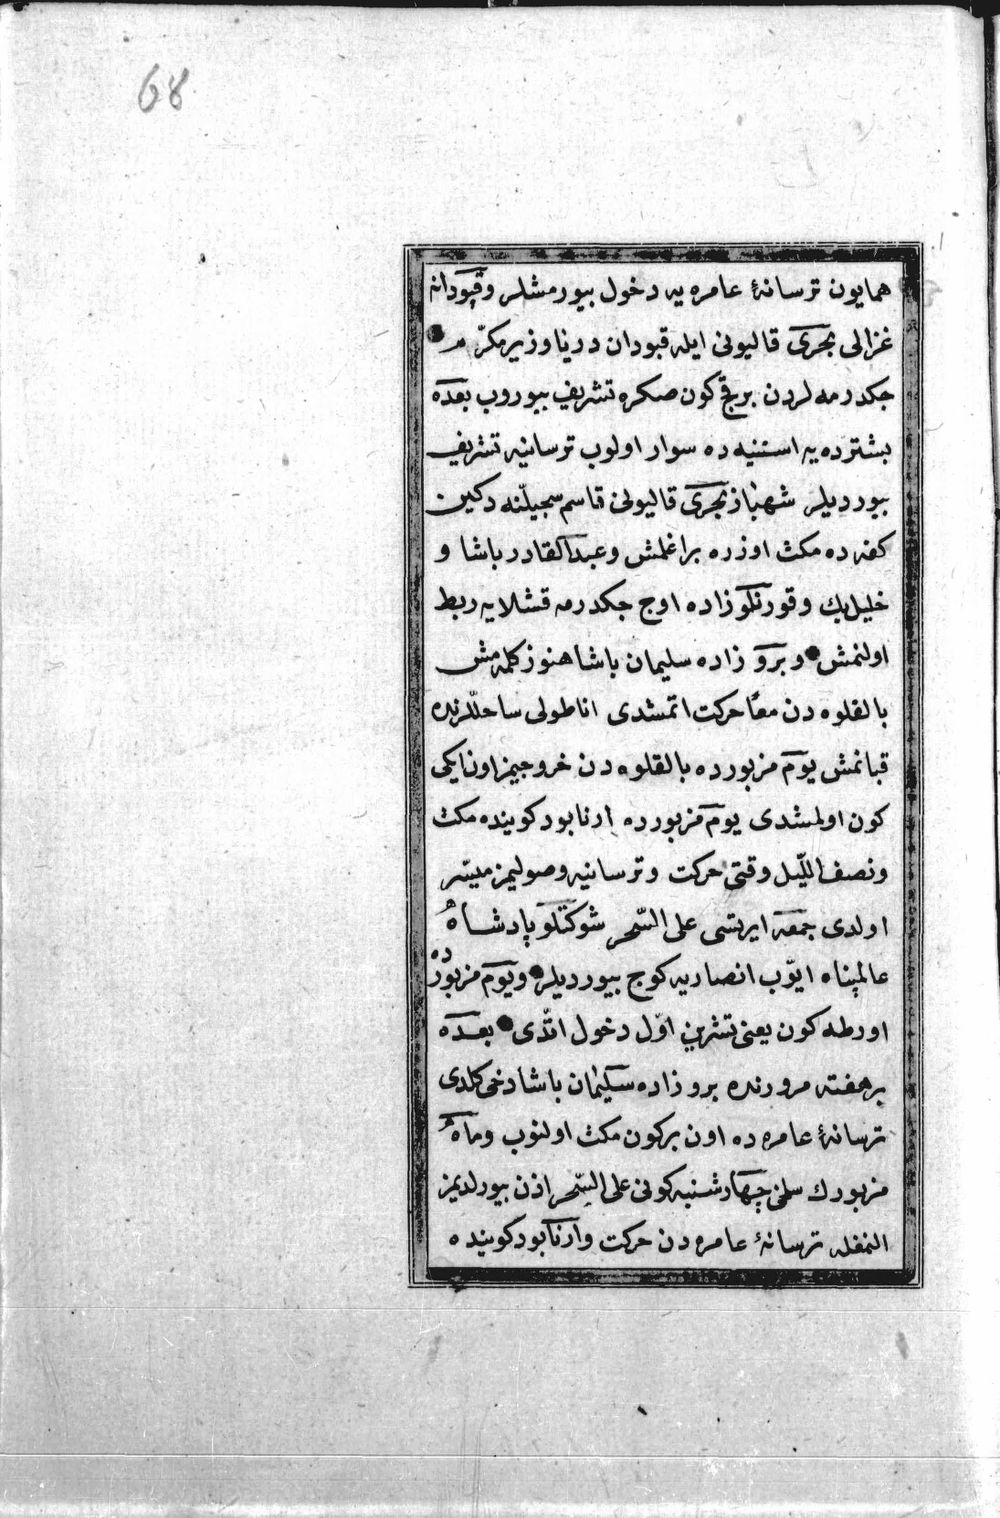 68
همایون ترسانهٔ عامره یه دخول بیورمشلر وقپودانه
غزالی بحری قالیونی ایله قبودان دریا وزیر مکرّم
چکدرمه لردن برقچ کون صکره تشریف بیوروب بعده
بشترده یه استنیه ده سوار اولوب ترسانیه تشریف
بیوردیلر شهباز بحری قالیونی قاسم دکین
کفه ده مکث اوزره براغلمش وعبدالقادر باشا و
خلیل بك وقورنکو زاده اوچ چکدرمه قشلایه ربط
اولنمش و برو زاده سلیمان باشا هنوز کلمه مش
بالقلوه دن معاً حرکت اتمشدی اناطولی ساحللرنده
قپانمش یوم مزبورده بالقلوه دن خروجیمز اون ایکی
کون اولمشدی یوم مزبورده ارنابود کوینده مکث
ونصف اللّیل وقتی حرکت وترسانیه وصولیمز میسّر
اولدی جمعه ایرتسی علی السّحر شوکتلو پادشاهُ
عالمپناه ایّوب انصاریه کوچ بیوردیلر ویوم مزبورده
اورطه کون یعنی تشرین اوّل دخول اتّدی بعده
بر هفته مرورنده برو زاده سلیمان باشا دخی کلدی
ترسانهٔ عامره ده اون بر کون مکث اولنوب وماهُ
مزبورك سلخی چهارشنبه کونی علی السّحر اذن بیورلدیمز
النمغله ترسانهٔ عامره دن حرکت وارنابود کوینده